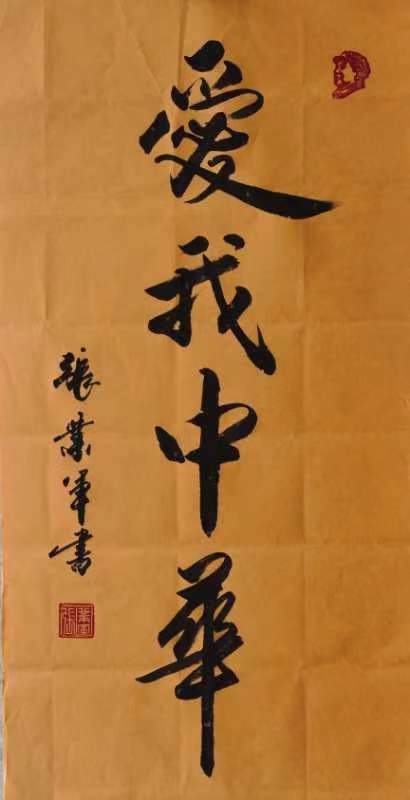 愛我中華
張業軍書